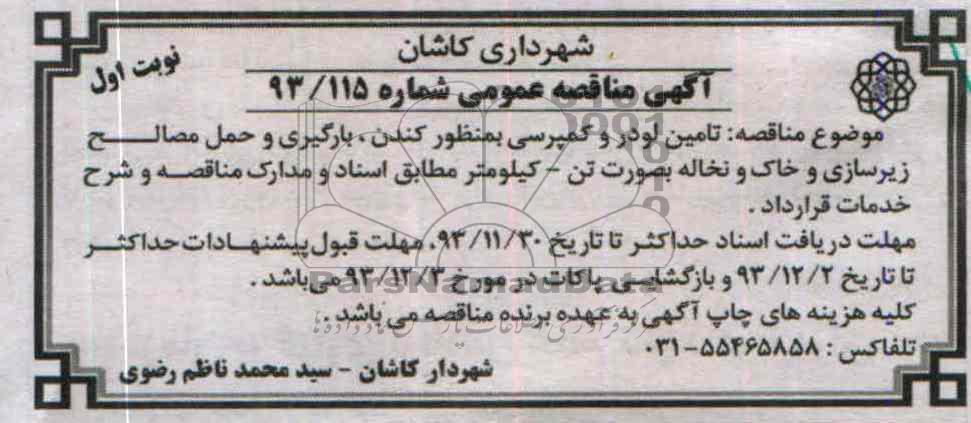 شهرداری کاشان
نوبت اول
آگهی مناقصه عمومی شماره ۹۳/۱۱۵
موضوع مناقصه: تامین لودر و کمپرسی بمنظور کندن، بارگیری و حمل مصالح
زیرسازی و خاک و نخاله بصورت تن - کیلومتر مطابق اسناد و مدارک مناقصه و شرح
خدمات قرارداد.
مهلت دریافت اسناد حداکثر تا تاریخ ۹۳/۱۱/۳۰، مهلت قبول پیشنهادات حداکثر
تا تاریخ ۹۳/۱۲/۲ و بازگشایی پاکات در مورخ ۹۳/۱۲/۳ می باشد.
کلیه هزینه های چاپ آگهی به عهده برنده مناقصه می باشد.
تلفاکس: ۵۵۴۶۵۸۵۸-۰۳۱
شهردار کاشان - سید محمد ناظم رضوی